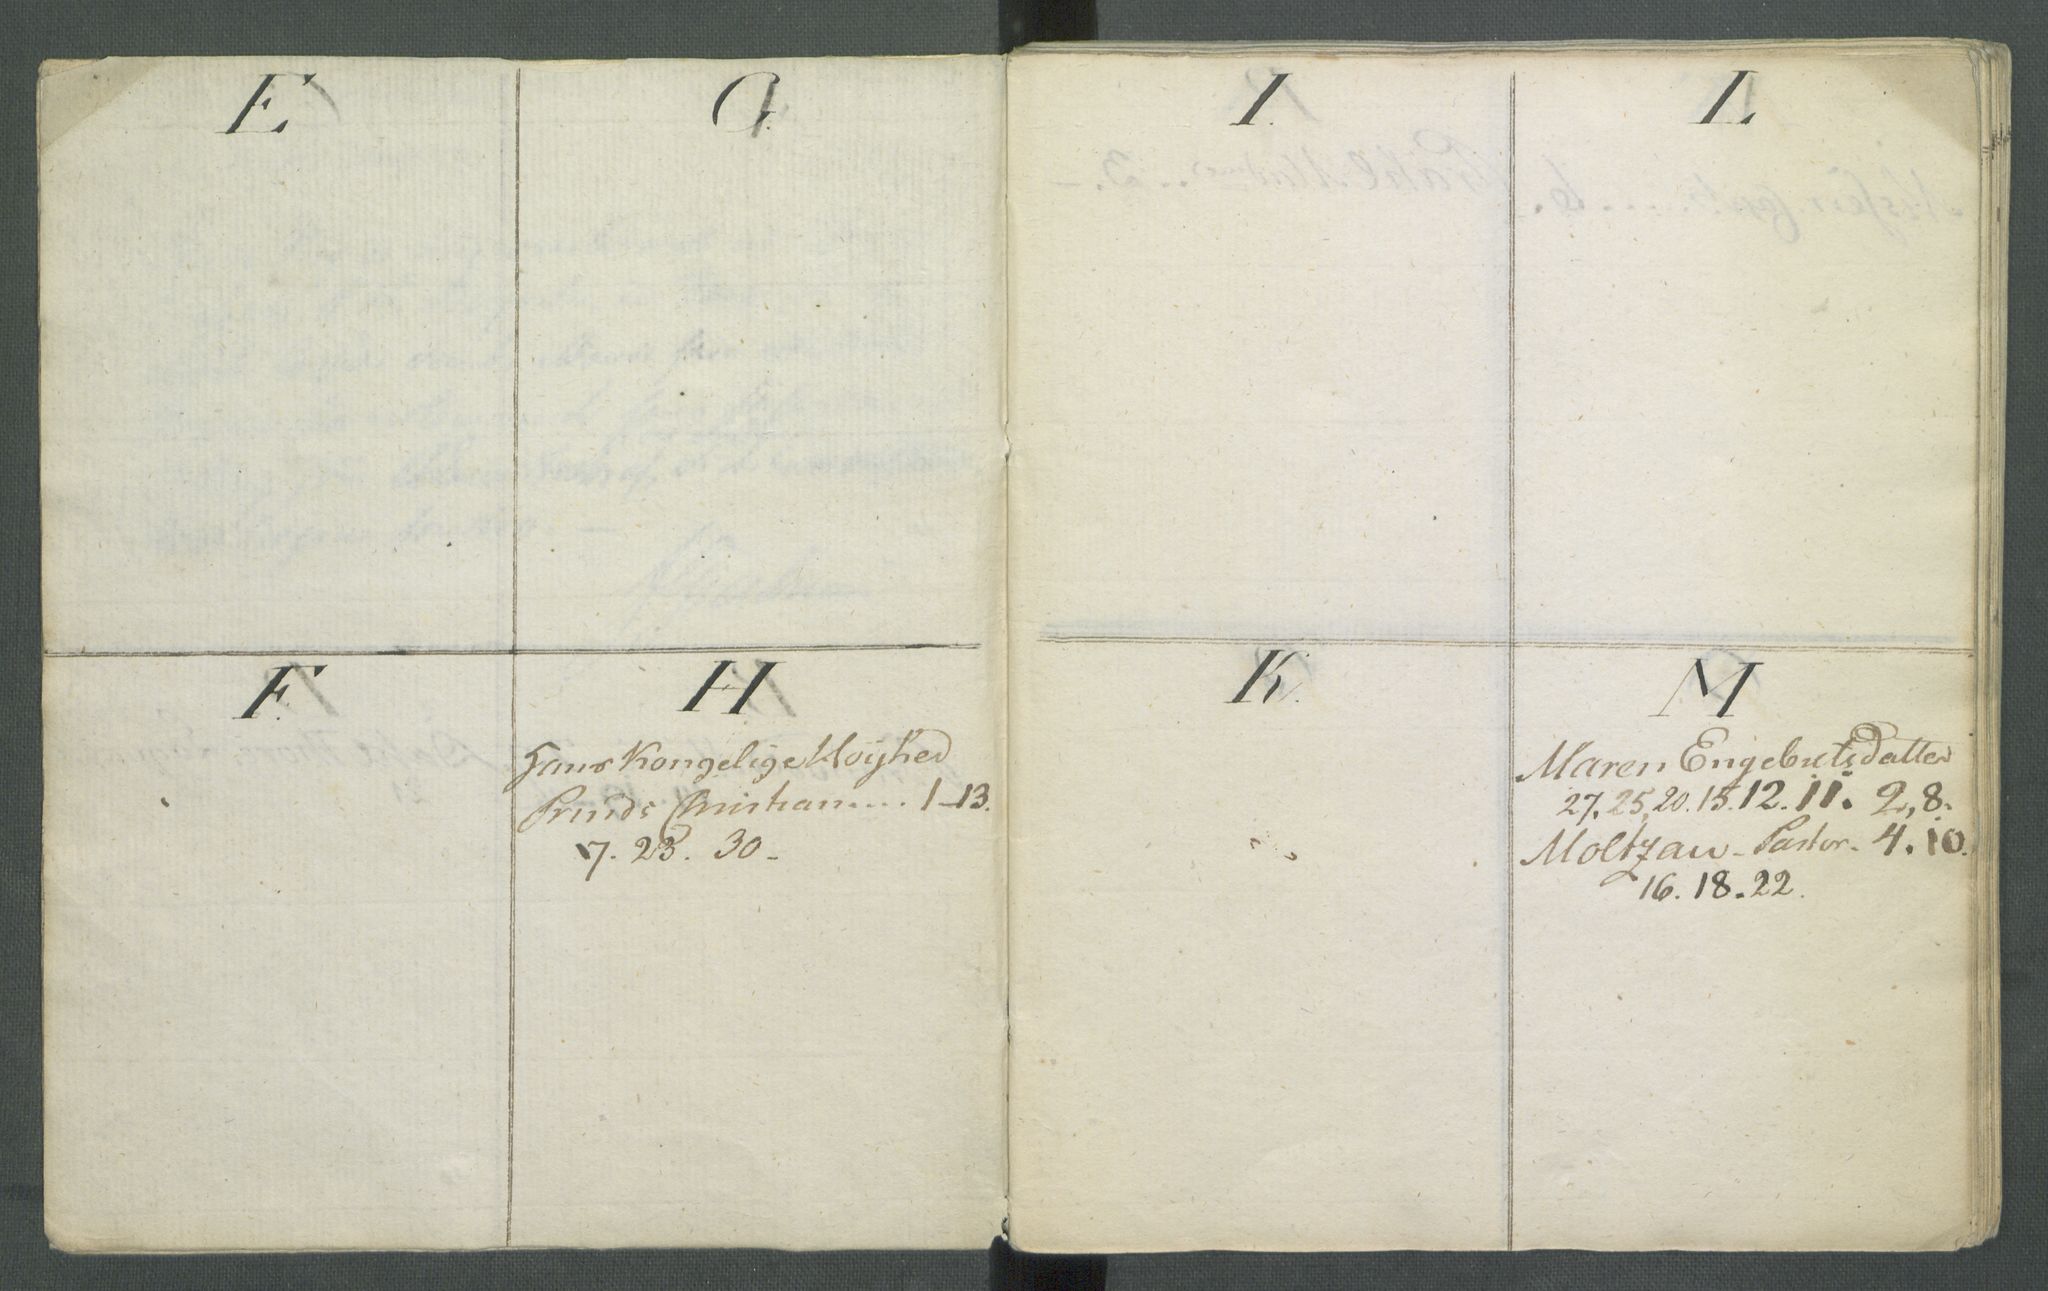 E
G.
F.
H
Hans Kongelige Høyhed
Prinds Christian.... 1-13.
7. 23. 30-
I.
L
K.
M
Maren Engebretsdatter
27. 25, 20. 15. 12. 11. 2, 8.
Moltzau - Pastor. 4. 10.
16. 18. 22.